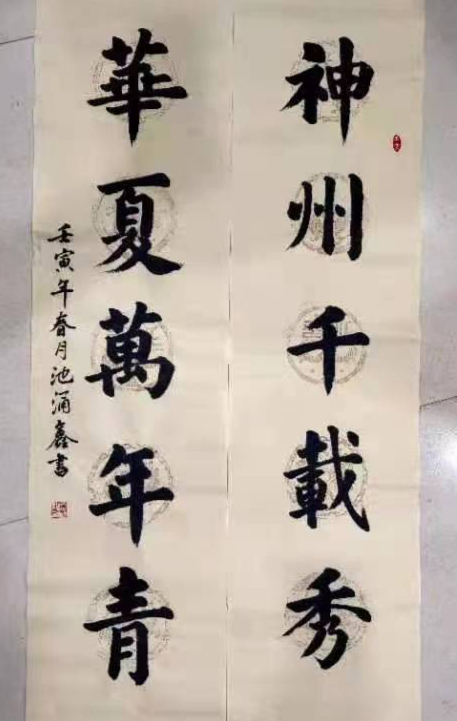 神州千載秀
華夏萬年青
壬寅年春月池涌鑫書